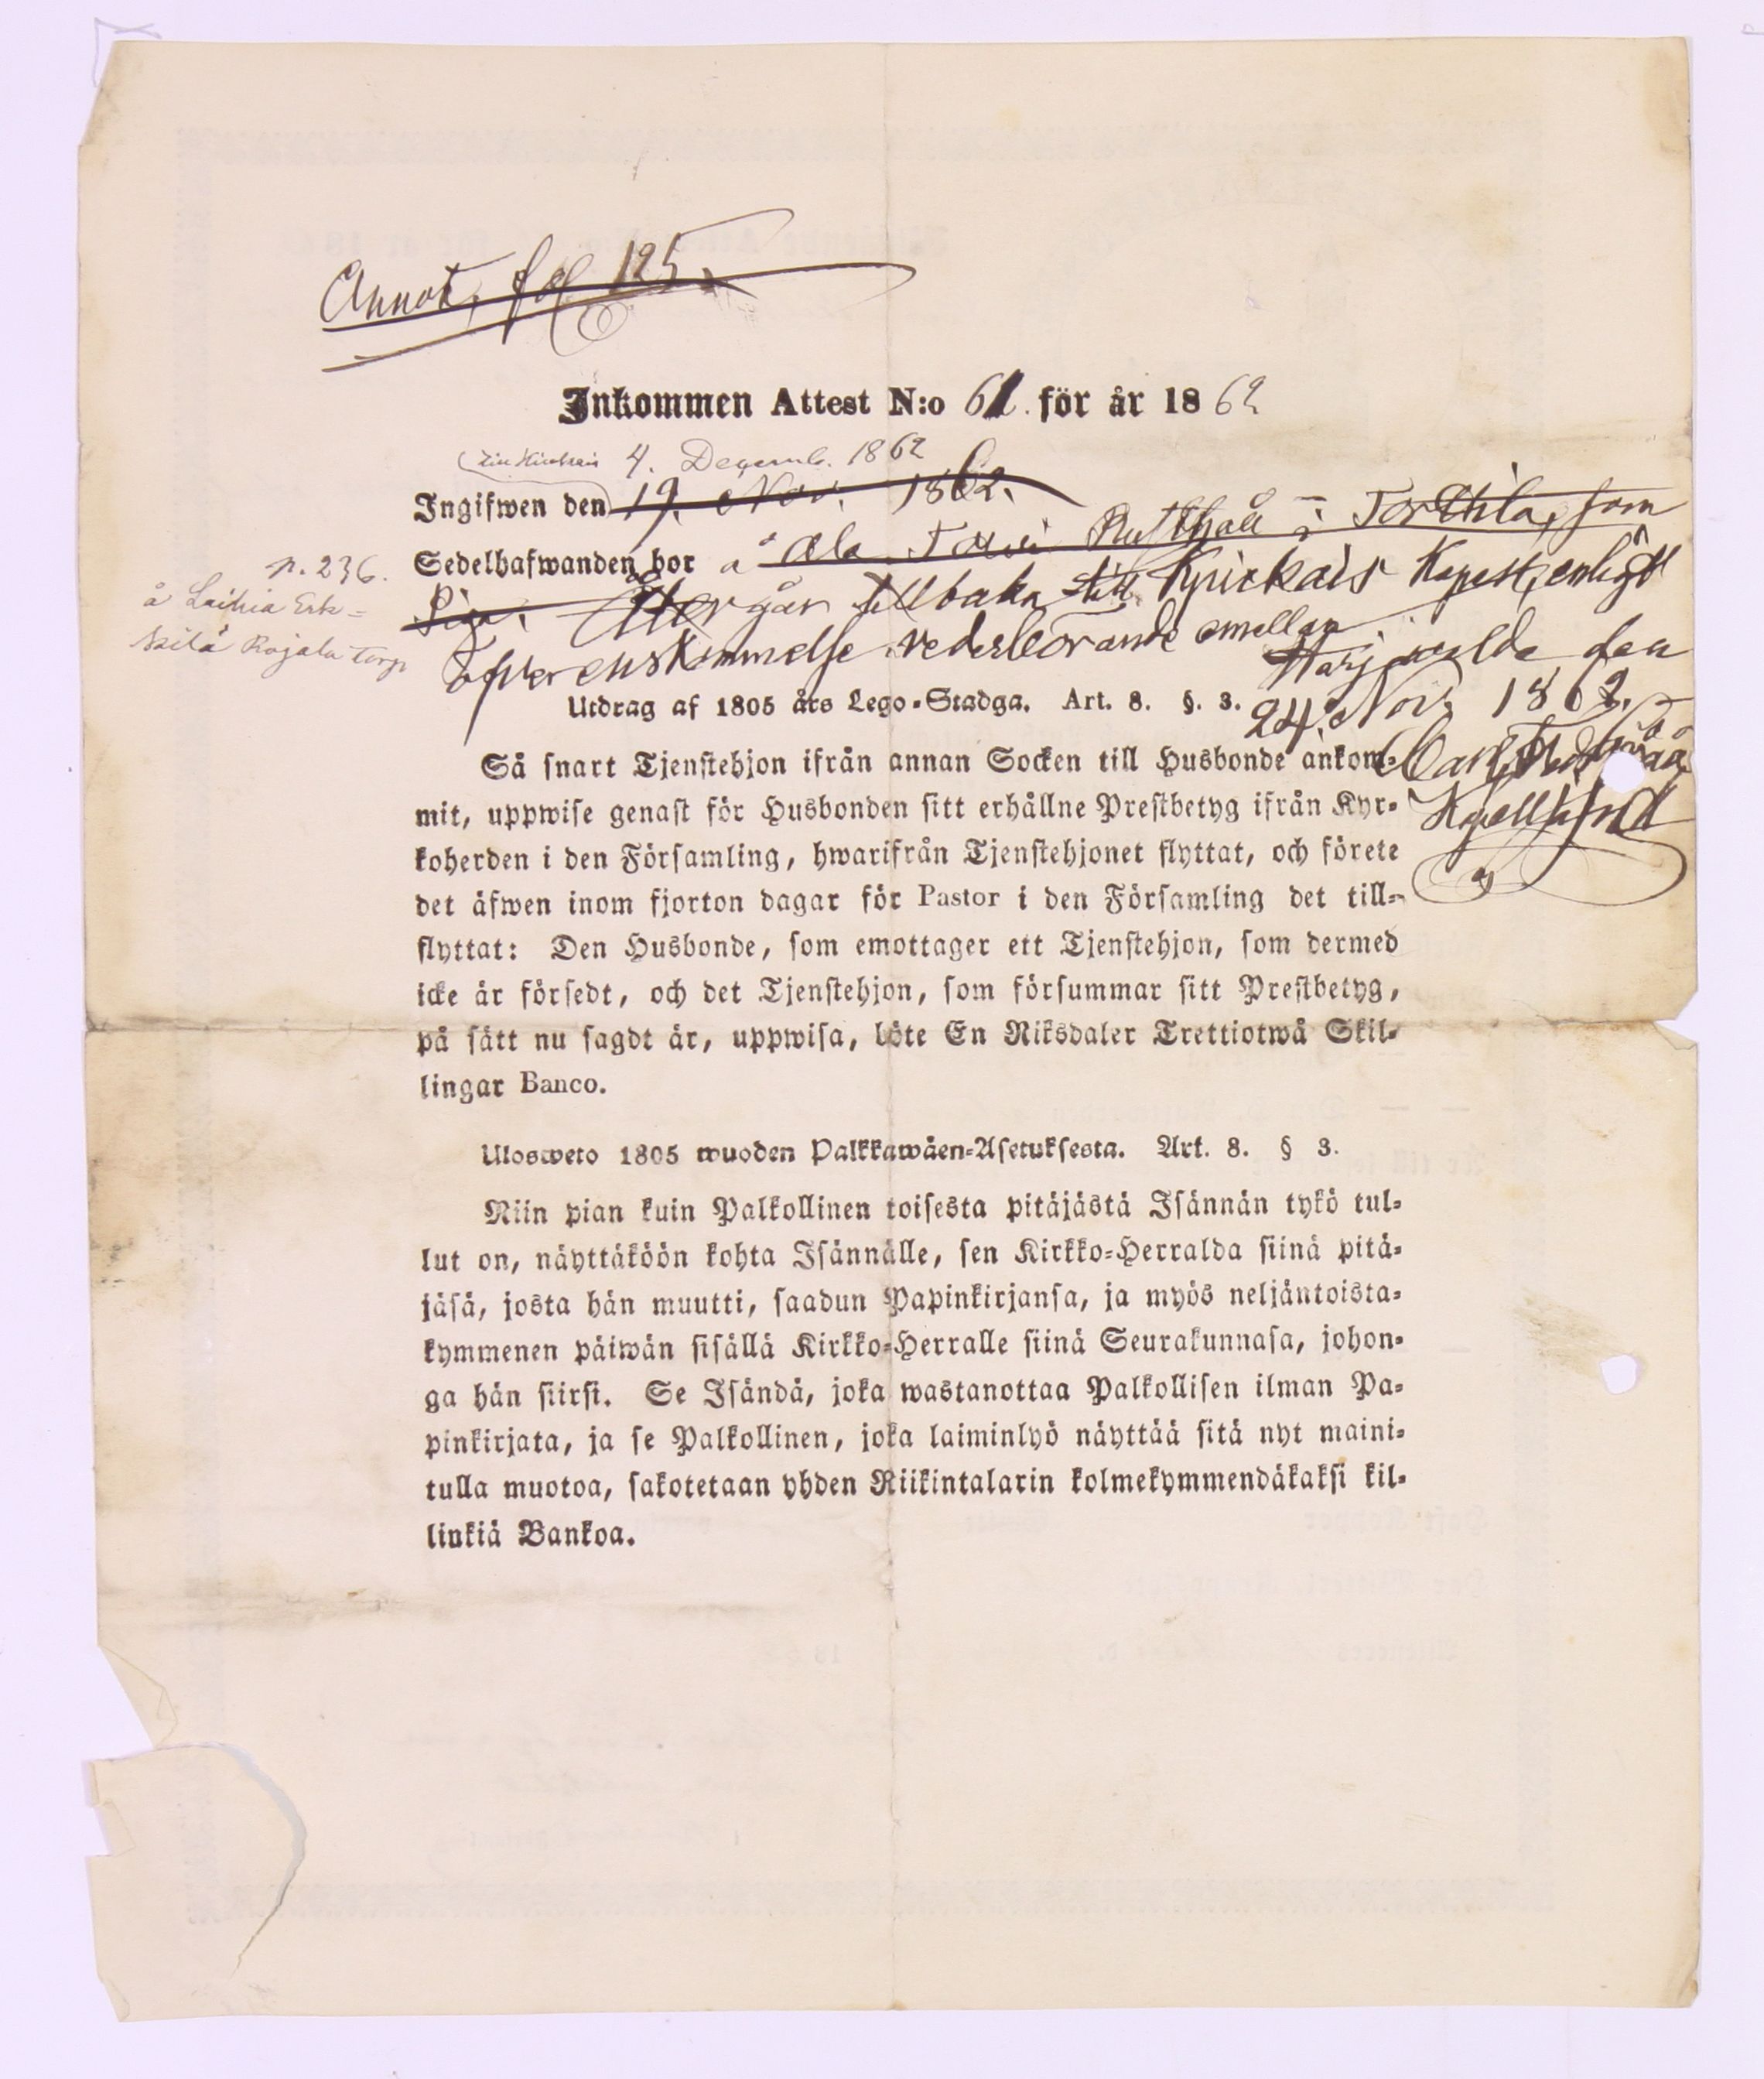 Annot. fol 125.
Inkommen Attest N:o 61. för år 1862
4. Decemb. 1862
Ingifwen den 19. Nov. 1862.
Sedelhafwanden bor å Ala Tawi Rusthåll i Torttila, som
Piga. Återgår tillbaka till Kjuickais Kapell, enligt
öfverenskommelse vederbörande emellan
n. 236.
å Laihia Erk=
kilä Rajala torp
Harjawalda den
24 Nov. 1862.
Utdrag af 1805 års Lego-Stadga. Art. 8. §. 3.
Så snart Tjenstehjon ifrån annan Socken till Husbonde ankom-
mit, uppwise genast för Husbonden sitt erhållne Prestbetyg ifrån Kyr-
koherden i den Församling, hwarifrån Tjenstehjonet flyttat, och förete
det äfwen inom fjorton dagar för Pastor i den Församling det till-
flyttat: Den Husbonde, som emottager ett Tjenstehjon, som dermed
icke är försedt, och det Tjenstehjon, som försummar sitt Prestbetyg,
på sätt nu sagdt är, uppwisa, böte En Riksdaler Trettiotwå Skil-
lingar Banco.
Ulosweto 1805 wuoden Palkkawäen-Asetuksesta. Art. 8. § 3.
Niin pian kuin Palkollinen toisesta pitäjästä Isännän tykö tul-
lut on, näyttäköön kohta Isännälle, sen Kirkko-Herralda siinä pitä-
jäsä, josta hän muutti, saadun Papinkirjansa, ja myös neljäntoista-
kymmenen päiwän sisällä Kirkko-Herralle siinä Seurakunnasa, johon-
ga hän siirsi. Se Isändä, joka wastanottaa Palkollisen ilman Pa-
pinkirjata, ja se Palkollinen, joka laiminlyö näyttää sitä nyt maini-
tulla muotoa, sakotetaan yhden Riikintalarin kolmekymmendäkaksi kil-
linkiä Bankoa.